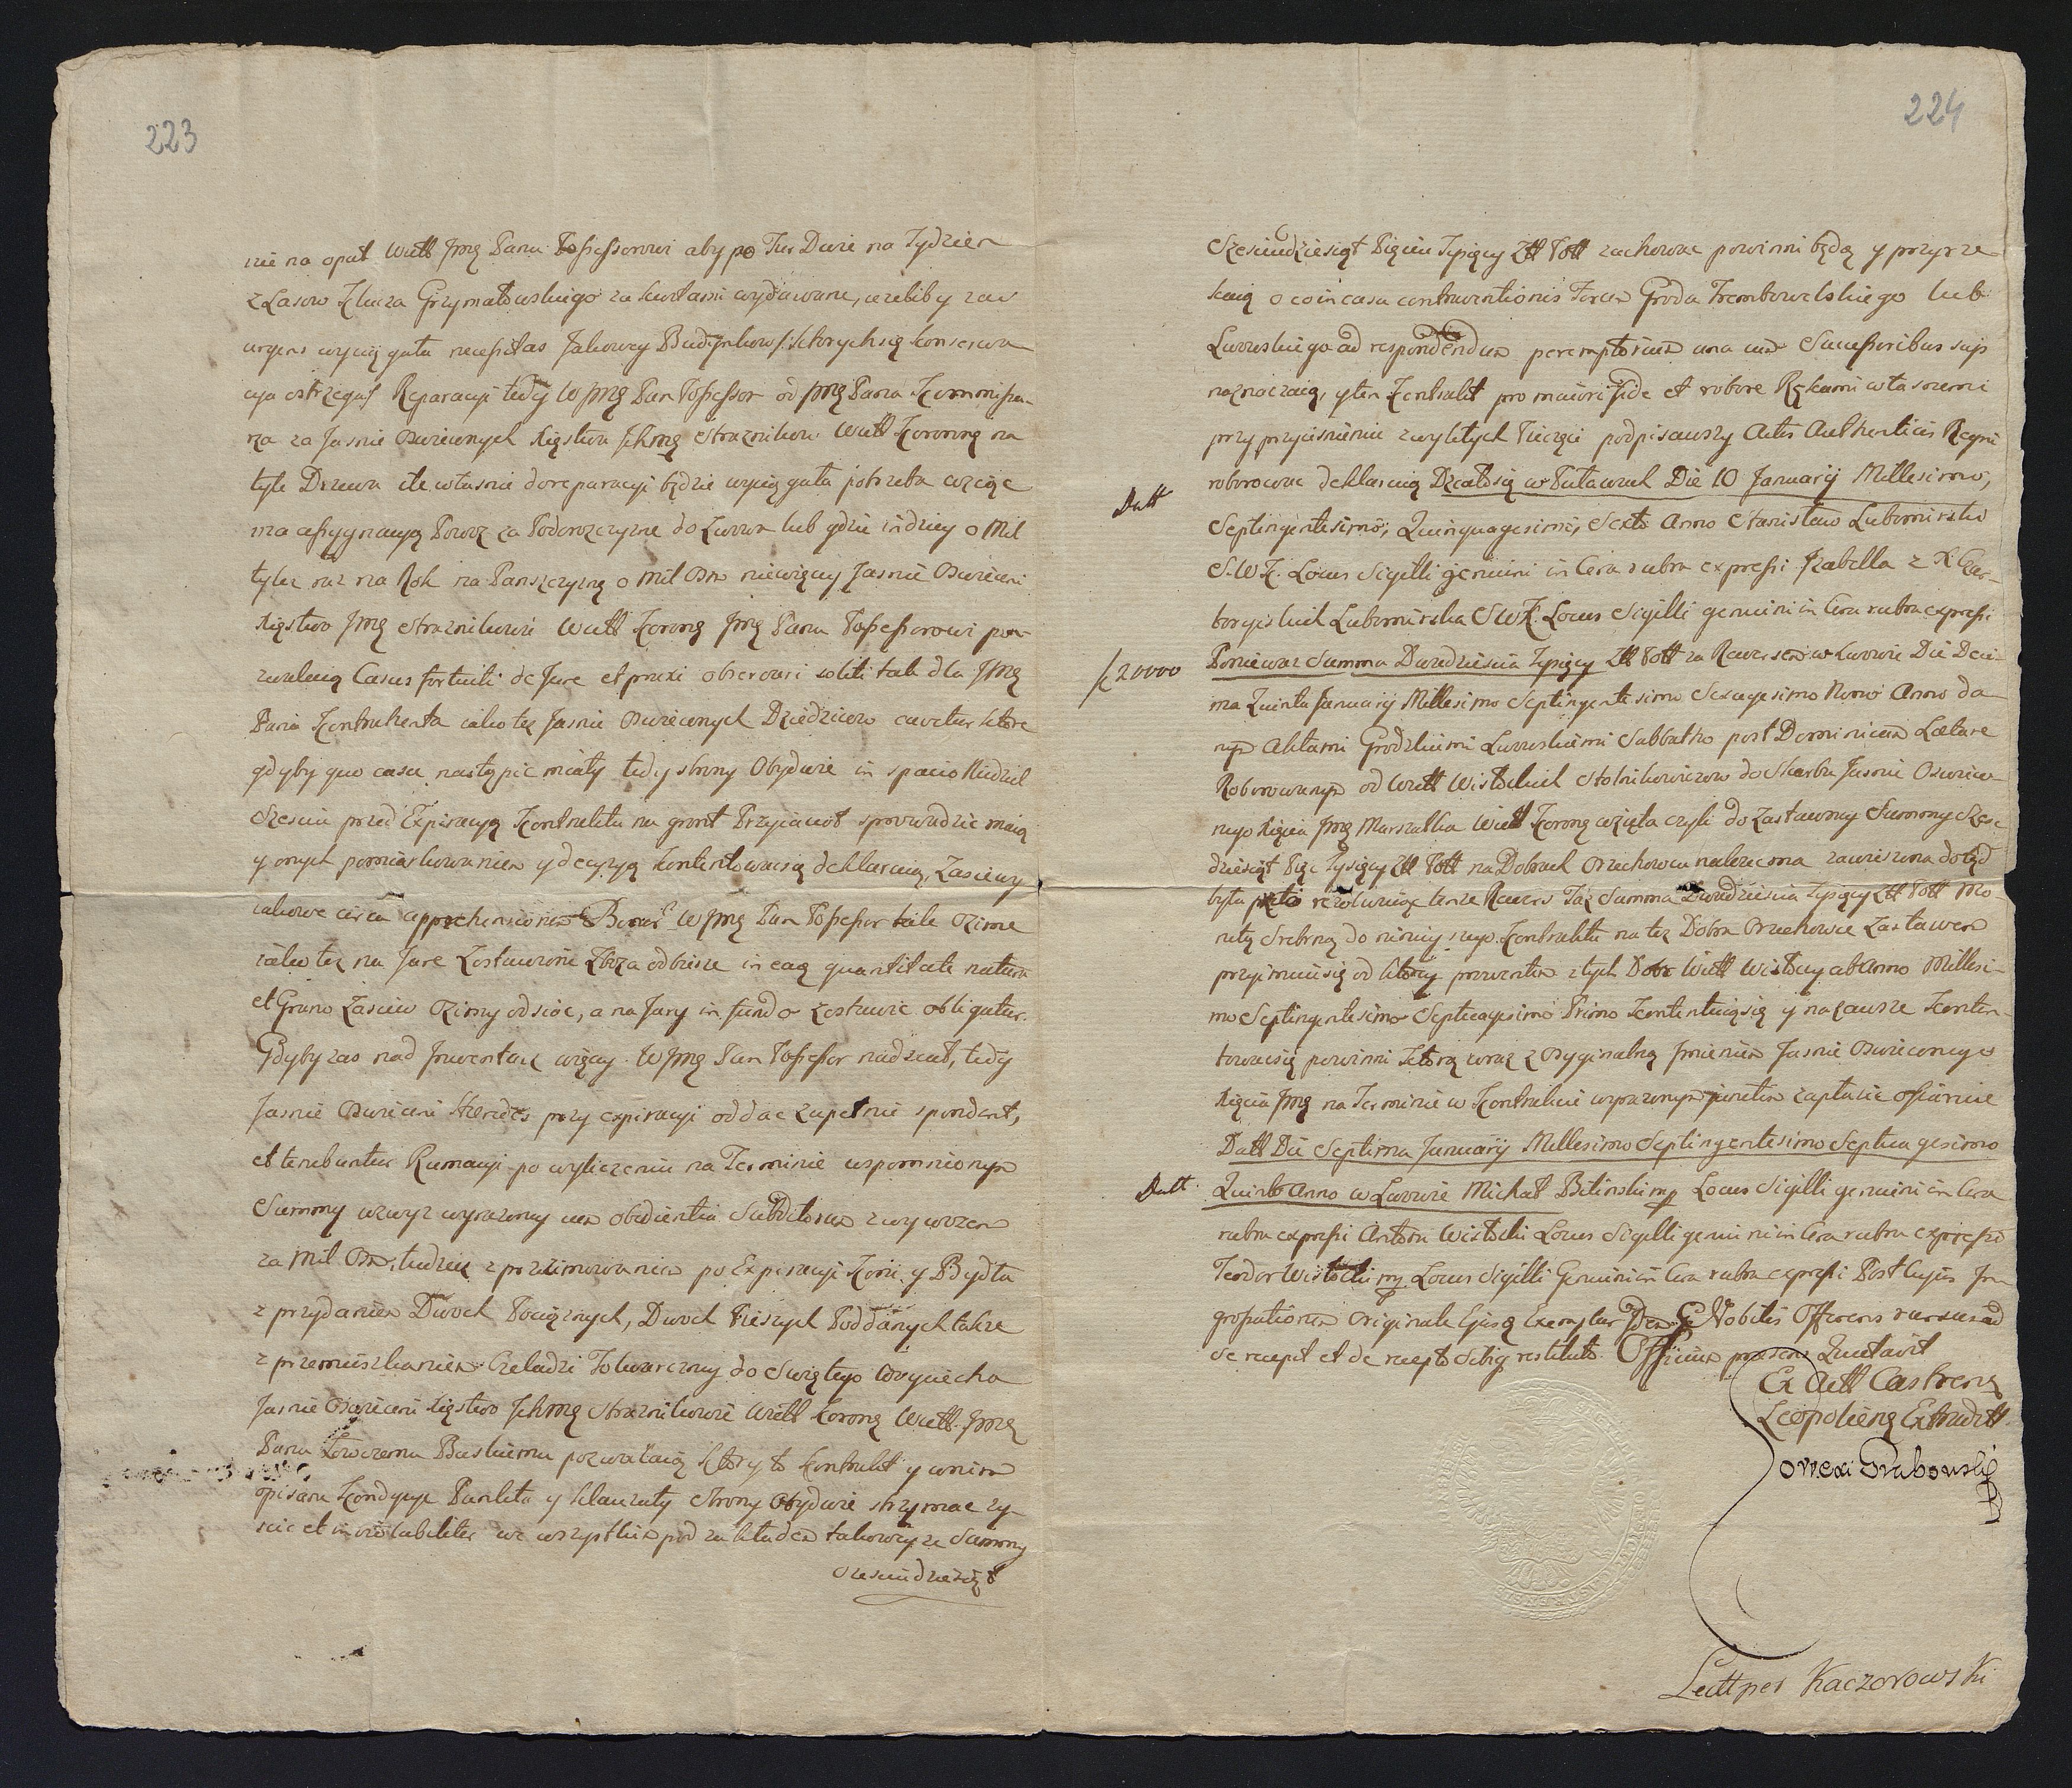 223
nie na opał Wielł Jmę Panu Possessorowi aby po Fur Dwie na Tydzien
z Lasow Klucza Grzymałowskiego za kwitami wydawane, ieżeliby zas
urgens wyciągała necessitas Jakowey Budynkow /: ktorych się konserwa
cya ostrzega :/ Reparacyi tedy WJmę Pan Possessor od Jmę Pana Kommissa-
rza za Jasnie Oswieconych Xięstwa Ichmę Straznikow Wiell Koronnę na
tyle Drzewa ile własnie do reparacyi będzie wyciągała potrzeba wziąsc
ma assygnacyą Powoz za Podorozczyzne do Lwowa lub gdzie indziey o Mil
tylez raz na Rok na Panszczyznę o Mil Osm niewięcey Jasnie Oswieceni
Xięstwo Jmę Straznikowie Wiell Koronę Jmę Panu Possessorowi poz-
walaią Casus fortuiti de Jure et praxi observari soliti tak dla Jmę
Pana Kontrahenta iako też Jasnie Oswieconych Dziedzicow cavetur ktore
gdyby quo casu nastąpic miały tedy strony Obydwie in spacio Niedziel
Szesciu przed Expiracyą Kontraktu na grunt Przyiacioł sprowadzic maią
y onych pomiarkowaniem y decyzyą kontentowac się deklaruią, Zasiewy
iakowe circa apprehensionem Bonor̃ WJmę Pan Possessor tak Ozime
iako też na Jare Zostawione Zboża odbierze in eaq̃ quantitate natura
et Grano Zasiew Ozimy odsiac, a na Jary in fundo zostawic obligatur.
Gdyby zas nad Inwentarz więcey WJmę Pan Possessor nadsiał, tedy
Jasnie Oswieceni Hæredes przy expiracyi oddac zupełnie spondent,
et tenebuntur Rumacyi po wyliczeniu na Terminie wspomnionym
Summy wzwyz wyrazoney cum obedientia Subditorum z wywozem
za Mil Osm, tudziez z przezimowaniem po Expiracyi Koni y Bydła
z przydaniem Dwoch Pociąznych, Dwoch Pieszych Poddanych takze
z przemieszkaniem Czeladzi Folwarczney do Swiętego Woyciecha
Jasnie Oswieceni Xięstwo Ichmę Straznikowie Wiell Koronę Wiell. Jmę
Panu Łowczemu Buskiemu pozwalaią ktory to Kontrakt y w nim
opisane Kondycye Punkta y klauzuły Strony Obydwie strzymac zy-
scic et inviolabiliter we wszystkim pod zakładem takoweyze Summy
Szesciudziesiąt
224
Szesciudziesiąt Pięciu Tysięcy Złł Poll zachowac powinni będą y przyrze-
kaią o co in casu contraventionis Forum Grodu Trembowelskiego lub
Lwowskiego ad respondendum peremptorium una cum Successoribus suis
naznaczaią, y ten Kontrakt pro maiori fide et robore Rękami własnemi
przy przycisnieniu zwykłych Pieczęci podpisawszy Actis Authenticis Regni
roborowac deklaruią Działo się w Puławach Die 10 Januarij Millesimo,
Datt
Septingentesimo, Quinquagesimo, Sexto Anno Stanisław Lubomirski
S.W.K. Locus Sigilli genuini in Cera rubra expressi Izabella z X Czar-
toryiskich Lubomirska SWK. Locus Sigilli genuini in Cera rubra expressi
/: 20000
Poniewaz Summa Dwadziescia Tysięcy Złł Poll za Rewersem w Lwowie Die Deci-
ma Quinta Januarij Millesimo Septingentesimo Sexagesimo Nono Anno da
nym Aktami Grodzkiemi Lwowskiemi Sabbatho post Dominicam Lætare
Roborowanym od Wiell Wisłockich Stolnikowiczow do Skarbu Jasnie Oswieco-
nego Xięcia Jmę Marszałka Wiell Koronę wzięta czyli do Zastawney Summy Szesc
dziesiąt Pięc Tysięcy Złł Poll na Dobrach Orzechowcu należeć ma zawieszona dotąd
była przeto rezolwuiąc tenze Rewers Taz Summa Dwadziescia Tysięcy Złł Poll Mo-
netą Srebrną do ninieyszego Kontraktu na też Dobra Orzechowiec Zastawem
przyimuie się od ktorey proventum z tych Dobr Wiell Wisłoccy ab Anno Millesi-
mo Septingentesimo Septuagesimo Primo Kontentuią się y na zawsze Konten-
towac się powinni ktorą wraz z Oryginalną Imieniem Jasnie Oswieconego
Xięcia Jmę na Terminie w Kontrakcie wyrazonym junctim zapłacic ofiaruie
Datt Die Septima Januarij Millesimo Septingentesimo Septuagesimo
Datt.
Quinto Anno w Lwowie Michał Bilinski mp Locus Sigilli genuini in Cera
rubra expressi Antoni Wisłocki Locus Sigilli genuini in Cera rubra expressi
Teodor Wisłocki mp Locus Sigilli Genuini in Cera rubra expressi Post Cujus In-
grossationem Originale Ejusq̃ Exemplar Idem G Nobilis Offerens rursus ad
Se recepit et de recepto Sibiq̃ restituto Officium præsens Quietavit
Ex Actt Castrens
Leopolienę Extraditt
Grabowski
Lectt per Kaczorowski